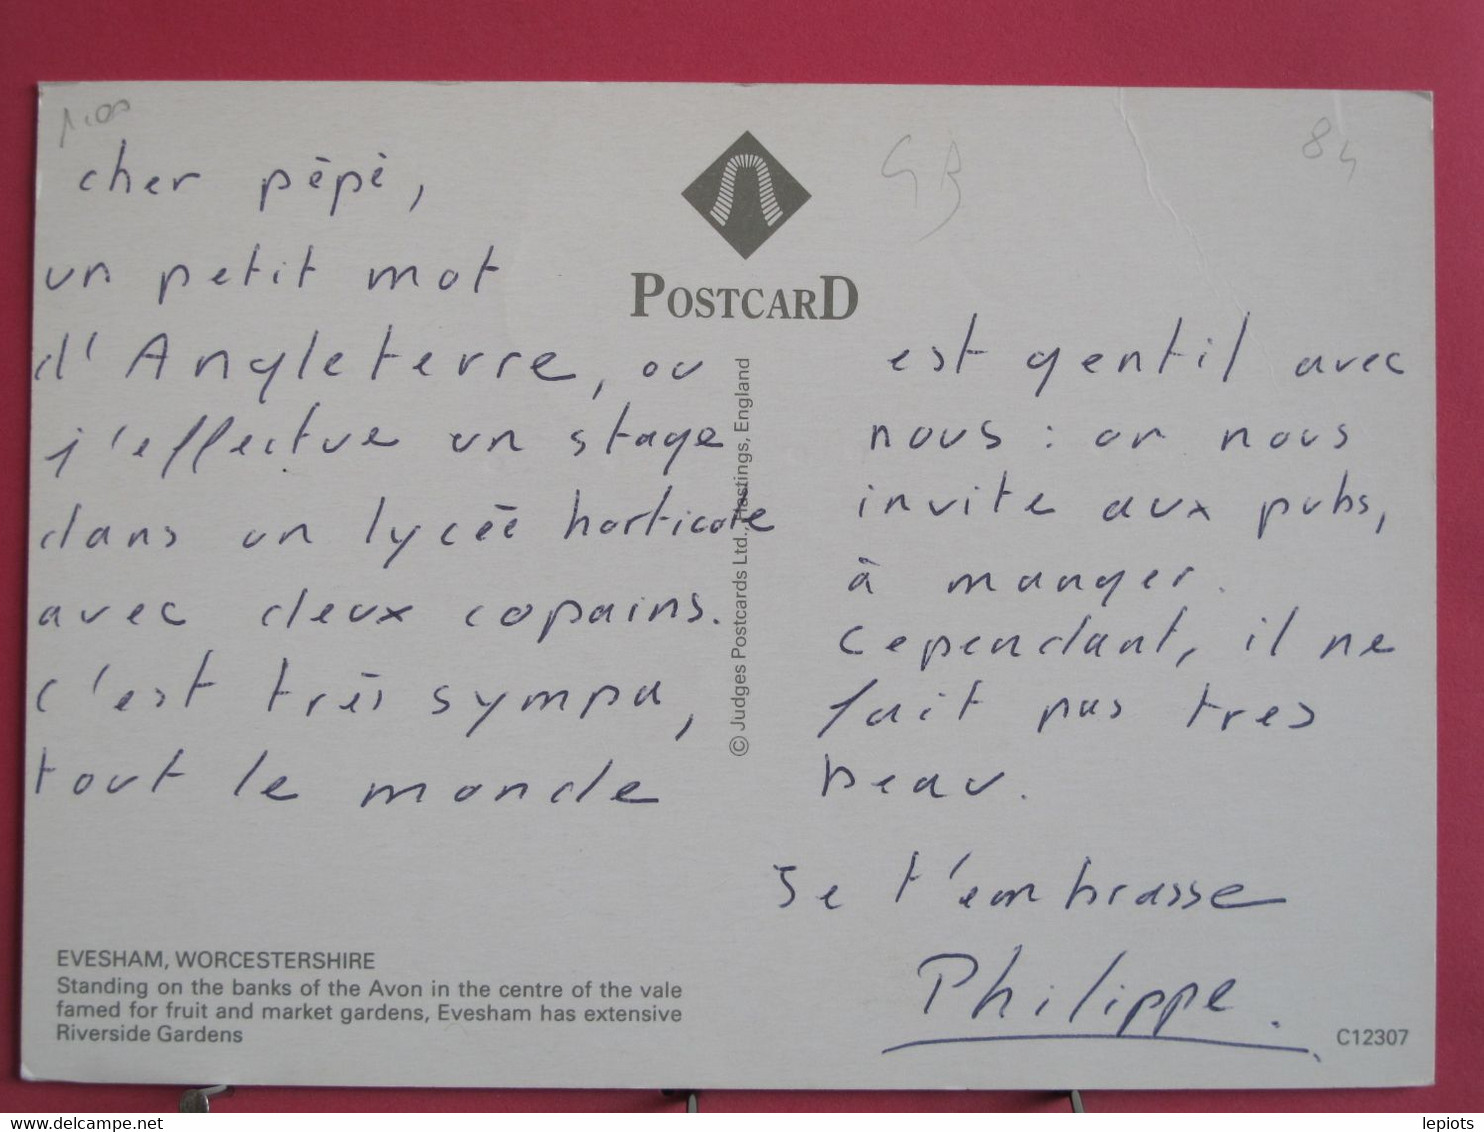 1.00
cher pèpè,
un petit mot
d'Angleterre, ou
j'effectue un stage
dans un lycée horticole
avec deux copains.
c'est très sympa,
tout le monde
GB
84
POSTCARD
© Judges Postcards Ltd., Hastings, England
est gentil avec
nous : on nous
invite aux pubs,
à manger.
Cependant, il ne
fait pas tres
beau.
Je t'embrasse
Philippe.
EVESHAM, WORCESTERSHIRE
Standing on the banks of the Avon in the centre of the vale
famed for fruit and market gardens, Evesham has extensive
Riverside Gardens
C12307
delcampe.net
lepiots